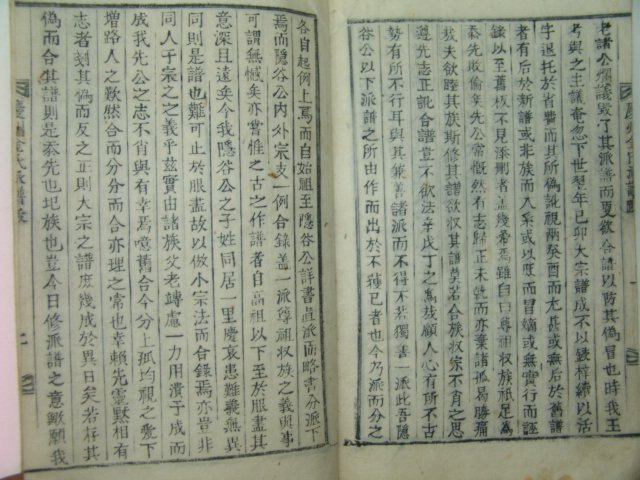 老諸公爛議毁了其派譜而更欲合譜以防其僞冒也時我王
考與之主議奄忽下世翌年己卯大宗譜成不以鋟梓續以活
字退托於省費而其所僞訛視兩癸酉而尤甚或無后於舊譜
者有后於新譜或非族而入系或以庶而冒嫡或無實行而誣
錄以至舊板不見添刪者盖幾希焉雖自曰尊祖收族祇足爲
忝先敗倫矣先公常慨然有志歸正未就而亦棄諸孤曷勝痛
㢤夫欲睦其族斯修其譜欲收其譜莫若合族收宗不肖之思
遵先志正訛合譜豈不欲法辛戊丁之爲㢤顧人心有所不古
勢有所不行耳與其兼善諸派而不得不若獨善一派此吾隱
谷公以下派譜之所由作而出於不獲已者也今乃派而分之
各自起例上焉而自始祖至隱谷公詳書直派而略書分派下
焉而隱谷公内外宗支一例合錄盖一派尊祖收族之義則事
可謂無憾矣亦嘗惟之古之作譜者自高祖以下至於服盡其
意深且遠矣今我隱谷公之子姓同居一里慶哀患難義無異
同則是譜也難可止於服盡故以倣小宗法而合錄焉亦豈非
同人于宗之之義乎玆實由諸族父老竱慮一力用潰于成而
成我先公之志不肖與有幸焉噫舊合今分上孤均視之愛下
増路人之歎然合而分分而合亦理之常也幸賴先靈默相有
志者刻其僞而反之正則大宗之譜庶幾成於異日矣若存其
僞而合其譜則是忝先也圯族也豈今日修派譜之意歟願我
慶州金氏派譜叙